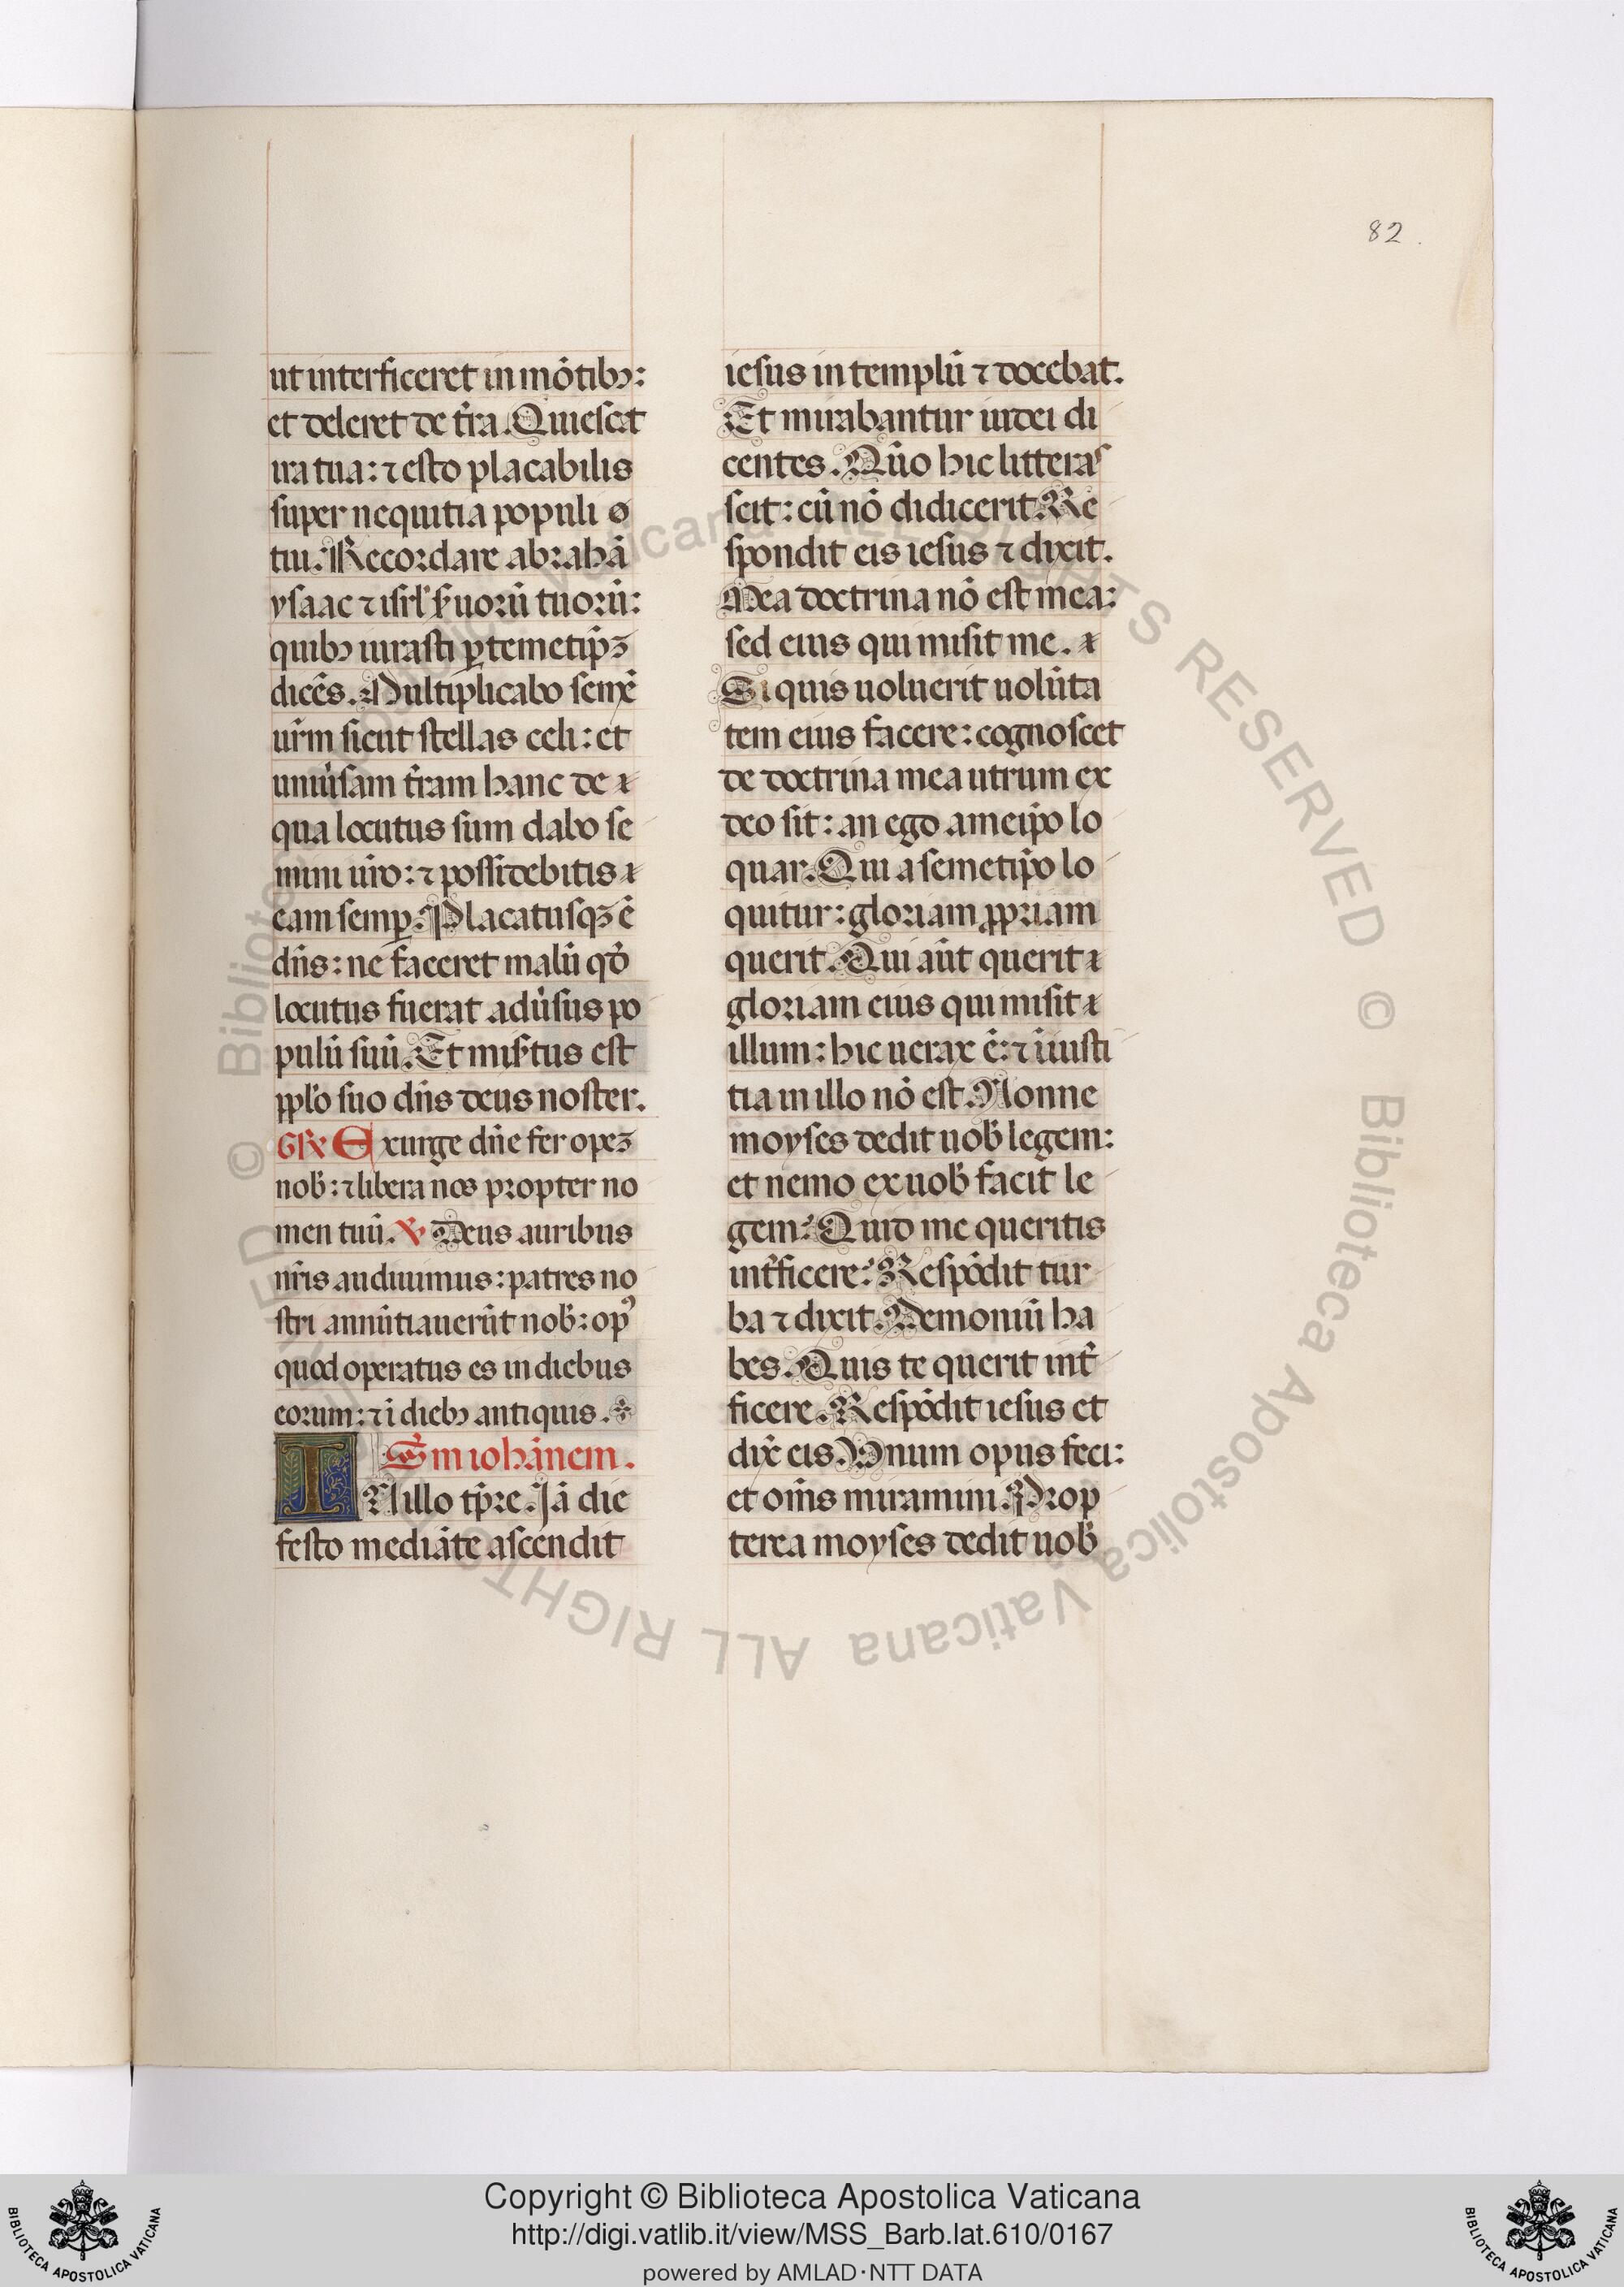 82
ut interficeret in mõtibꝫ:
et deleret de t̃ra. Quiescat
ira tua: ⁊ esto placabilis
super nequitia populi
tui. Recordare abrahã
ysaac ⁊ isrl̃ s̃uorũ tuorũ:
quibꝫ iurasti ꝑ temetip̃ꝫ
dicẽs. Multiplicabo semẽ
ur̃m sicut stellas celi: et
uniũsam t̃ram hanc de
qua locutus sum dabo se
mini uro: ⁊ possidebitis
eam semꝑ. Placatusqꝫ ẽ
dñs: ne faceret malũ qd̃
locutus fuerat adũsus po
pulũ suũ. Et mis̃tus est
ppl̃o suo dñs deus noster.
Gr̃ Exurge dñe fer opeꝫ
nob̃: ⁊ libera nos propter no
men tuũ. ℣ Deus auribus
nr̃is audiuimus: patres no
stri annũtiauerũt nob̃: opꝰ
quod operatus es in diebus
eorum: ⁊ ĩ diebꝫ antiquis.
Sm iohãnem.
IN illo tp̃re. Jã die
festo mediãte ascendit
iesus in templũ ⁊ docebat.
Et mirabantur iudei di
centes. Qũo hic litteras
scit: cũ nõ didicerit. Re
spondit eis iesus ⁊ dixit.
Mea doctrina nõ est mea:
sed eius qui misit me.
Si quis uoluerit uolũta
tem eius facere: cognoscet
de doctrina mea utrum ex
deo sit: an ego a meip̃o lo
quar. Qui a semetip̃o lo
quitur: gloriam ꝓpriam
querit. Qui aũt querit
gloriam eius qui misit
illum: hic uerax ẽ: ⁊ ĩiusti
tia in illo nõ est. Nonne
moyses dedit uob̃ legem:
et nemo ex uob̃ facit le
gem? Quid me queritis
int̃ficere? Respõdit tur
ba ⁊ dixit. Demoniũ ha
bes. Quis te querit int̃
ficere. Respõdit iesus et
dix̃ eis. Unum opus feci:
et om̃s miramini. Prop
terea moyses dedit uob̃
© Biblioteca Apostolica Vaticana ALL RIGHTS RESERVED
Copyright © Biblioteca Apostolica Vaticana
http://digi.vatlib.it/view/MSS_Barb.lat.610/0167
powered by AMLAD·NTT DATA
BIBLIOTECA APOSTOLICA VATICANA
BIBLIOTECA APOSTOLICA VATICANA